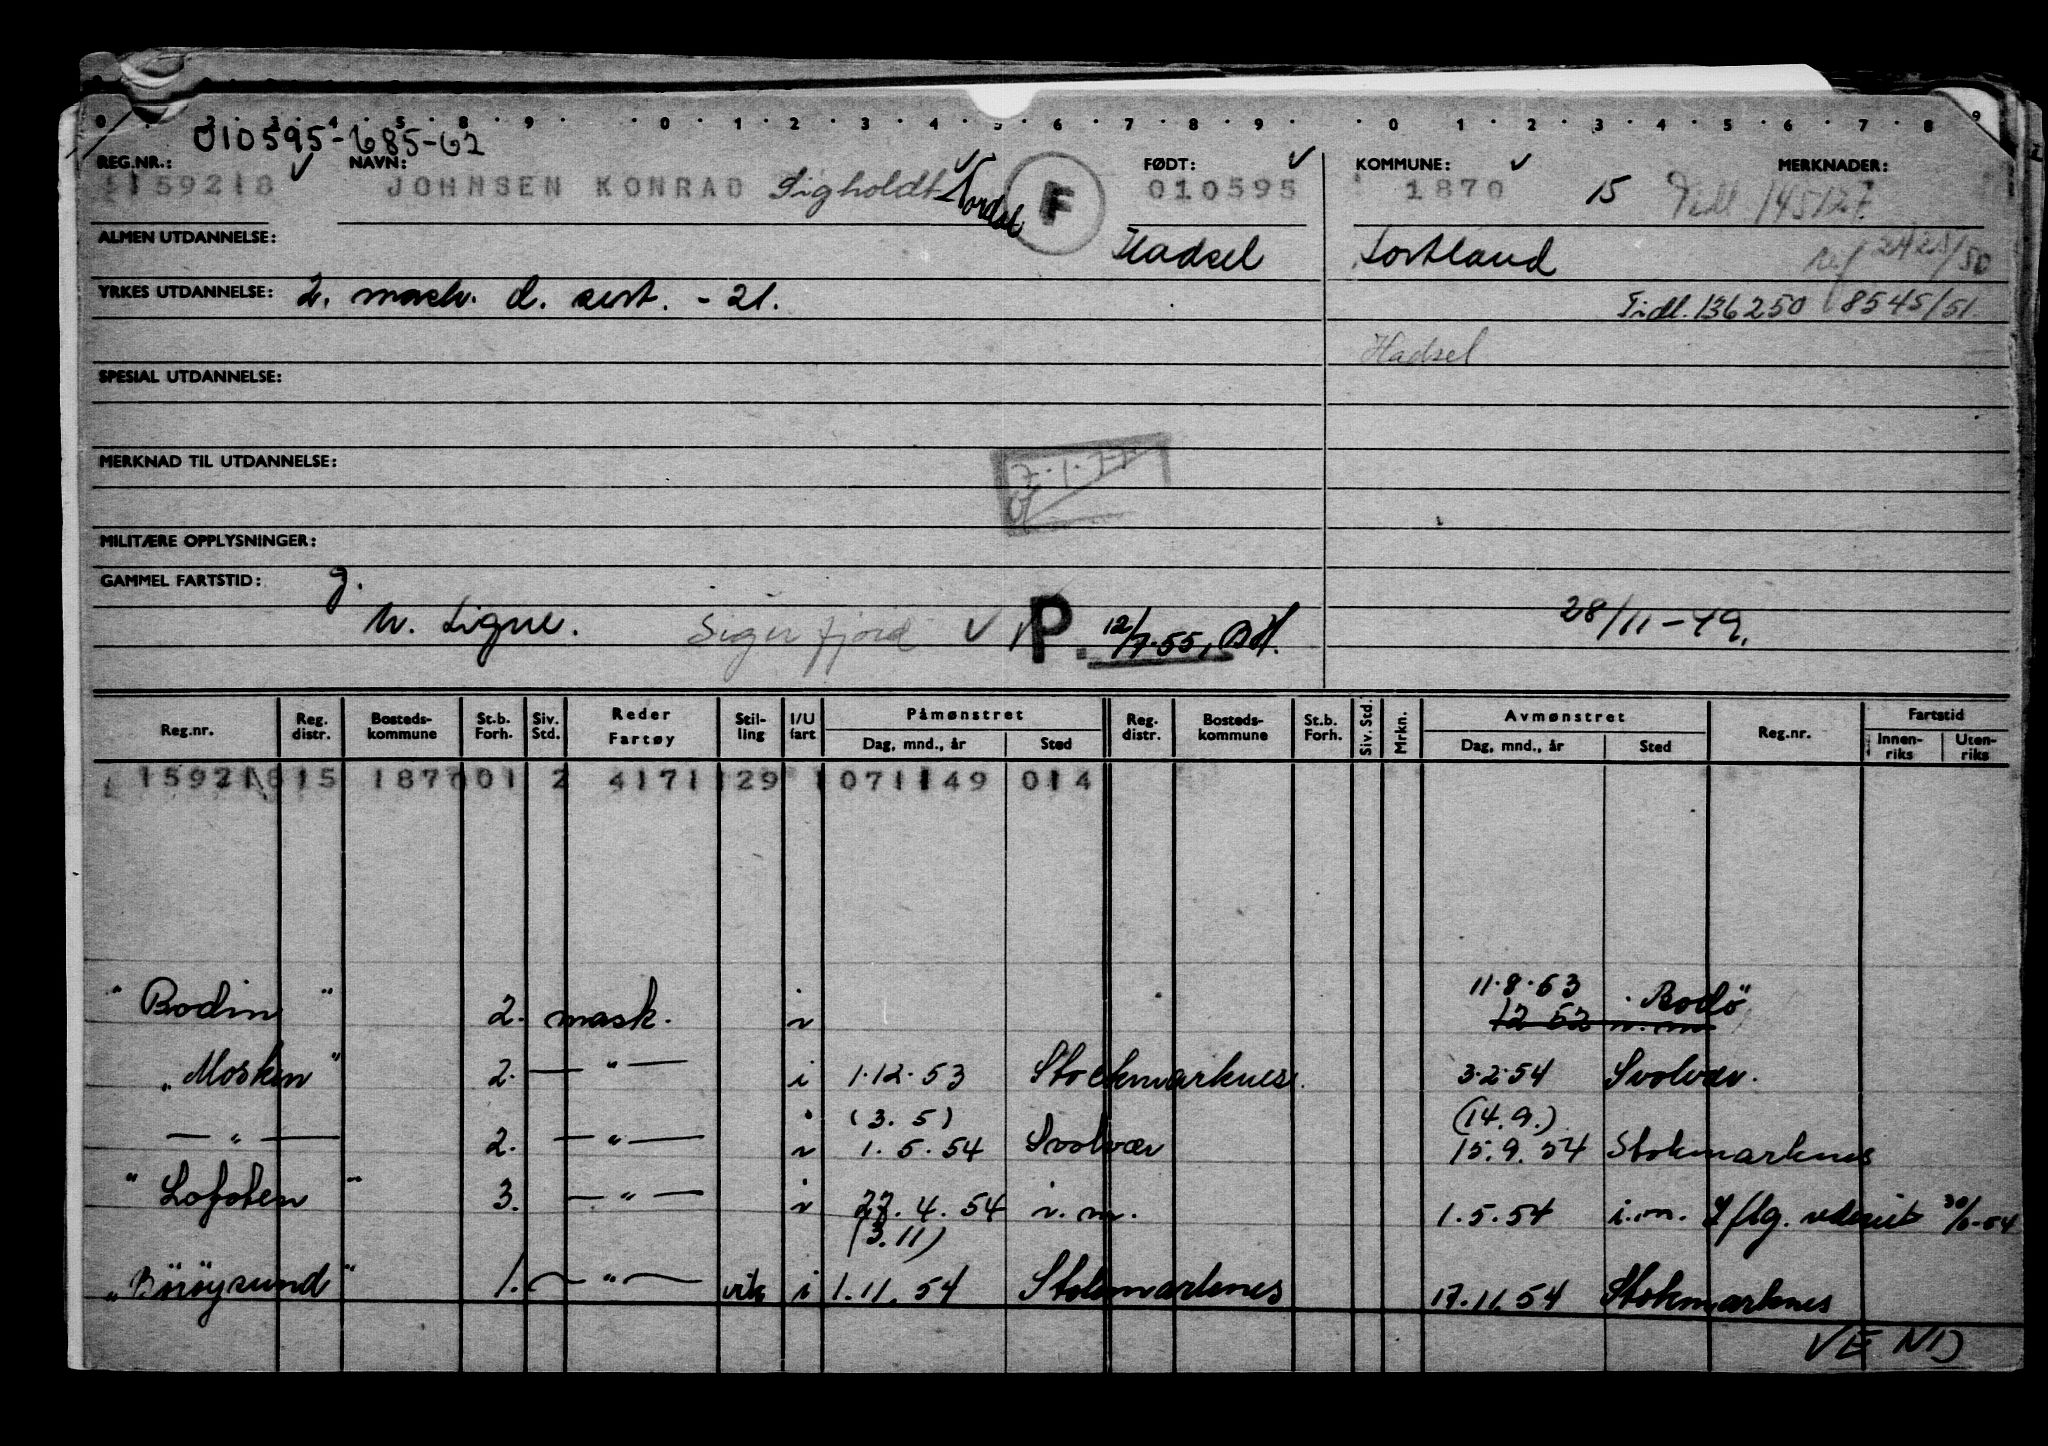 010595-685-62
REG.NR.: NAVN: FØDT: KOMMUNE: MERKNADER:
159218 JOHNSEN KONRAD Sigholdt Nordal F 010595 1870 15 Tidl 145127
ALMEN UTDANNELSE: Hadsel Sortland ref 2425/50
YRKES UTDANNELSE: 2. mask. d. sert. - 21. Tidl. 136250 8545/51
Hadsel
SPESIAL UTDANNELSE:
MERKNAD TIL UTDANNELSE:
MILITÆRE OPPLYSNINGER:
GAMMEL FARTSTID: g.
Sigerfjord P. 12/7.55, 28/11-49.
Reg.nr. Reg. distr. Bosteds-kommune St.b. Forh. Siv. Std. Reder Fartøy Stil-ling I/U fart Påmønstret Dag, mnd., år Sted Reg. distr. Bosteds-kommune St.b. Forh. Siv. Std. Mrkn. Avmønstret Dag, mnd., år Sted Reg.nr. Fartstid Innen-riks Uten-riks
159218 15 1870 01 2 4171 29 1 071149 014
11.8.53
"Bodin" 2. mask. i 12 52 Bodø
"Mosken" 2. — " — i 1.12.53 Stockmarknes 3.2.54 Svolvær.
(3.5) (14.9.)
— " — 2. — " — i 1.5.54 Svolvær 15.9.54 Stokmarknes
"Lofoten" 3. — " — i 27.4.54 i.m. 1.5.54 i.m. 30/6-54
(3.11)
"Börøysund" 1. — " — vik i 1.11.54 Stokmarknes 17.11.54 Stokmarknes
VEND